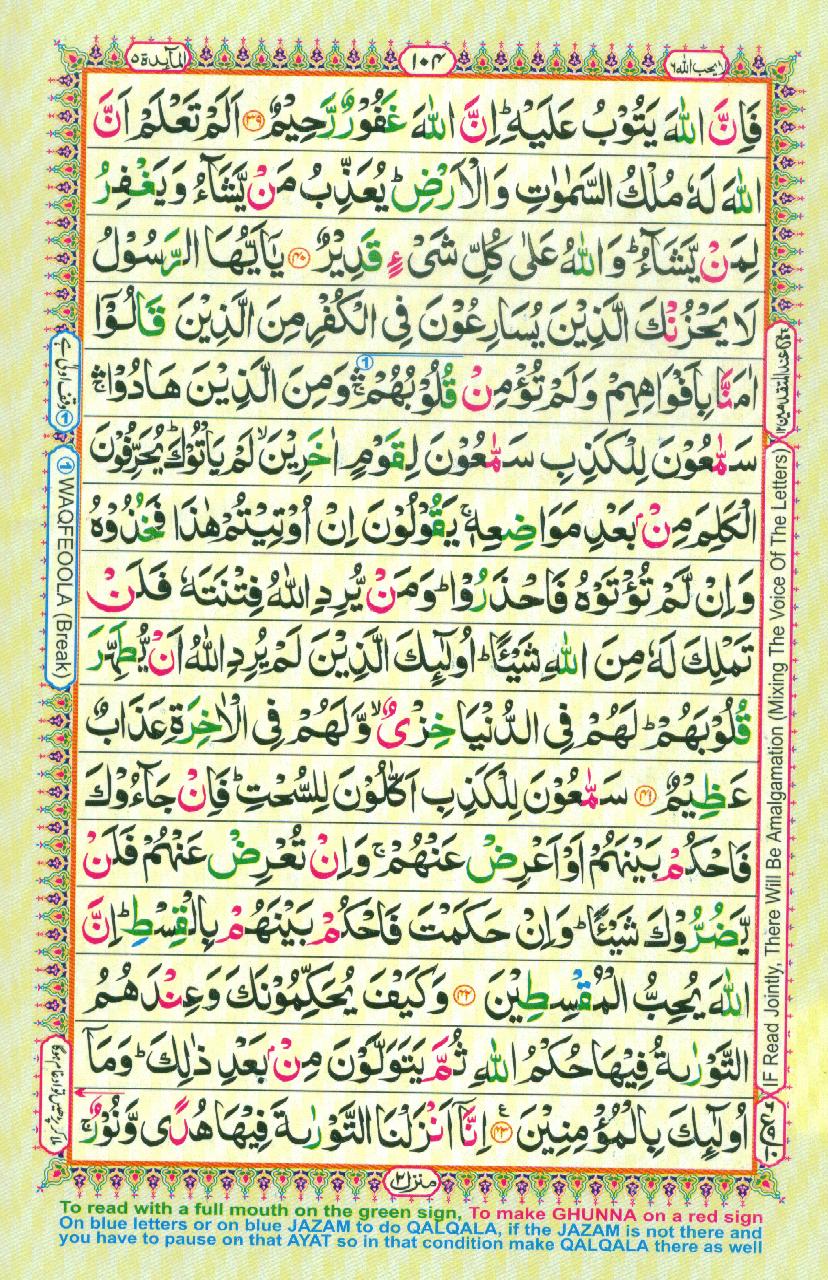 المآىِٕدة ٥
١٠٤
لا يحب الله ٦
فَاِنَّ اللّٰهَ يَتُوْبُ عَلَيْهِ ؕ اِنَّ اللّٰهَ غَفُوْرٌ رَّحِيْمٌ ﴿۳۹﴾ اَلَمْ تَعْلَمْ اَنَّ
اللّٰهَ لَهٗ مُلْكُ السَّمٰوٰتِ وَ الْاَرْضِ ؕ يُعَذِّبُ مَنْ يَّشَآءُ وَ يَغْفِرُ
لِمَنْ يَّشَآءُ ؕ وَ اللّٰهُ عَلٰى كُلِّ شَیْءٍ قَدِيْرٌ ﴿۴۰﴾ يٰۤاَيُّهَا الرَّسُوْلُ
لَا يَحْزُنْكَ الَّذِيْنَ يُسَارِعُوْنَ فِی الْكُفْرِ مِنَ الَّذِيْنَ قَالُوْۤا
اٰمَنَّا بِاَفْوَاهِهِمْ وَ لَمْ تُؤْمِنْ قُلُوْبُهُمْ ۛۚ وَ مِنَ الَّذِيْنَ هَادُوْا ۛۚ
سَمّٰعُوْنَ لِلْكَذِبِ سَمّٰعُوْنَ لِقَوْمٍ اٰخَرِيْنَ ۙ لَمْ يَاْتُوْكَ ؕ يُحَرِّفُوْنَ
الْكَلِمَ مِنْۢ بَعْدِ مَوَاضِعِهٖ ۚ يَقُوْلُوْنَ اِنْ اُوْتِيْتُمْ هٰذَا فَخُذُوْهُ
وَ اِنْ لَّمْ تُؤْتَوْهُ فَاحْذَرُوْا ؕ وَ مَنْ يُّرِدِ اللّٰهُ فِتْنَتَهٗ فَلَنْ
تَمْلِكَ لَهٗ مِنَ اللّٰهِ شَيْـًٔا ؕ اُولٰٓىِٕكَ الَّذِيْنَ لَمْ يُرِدِ اللّٰهُ اَنْ يُّطَهِّرَ
قُلُوْبَهُمْ ؕ لَهُمْ فِی الدُّنْيَا خِزْیٌ ۙ وَّ لَهُمْ فِی الْاٰخِرَةِ عَذَابٌ
عَظِيْمٌ ﴿۴۱﴾ سَمّٰعُوْنَ لِلْكَذِبِ اَكّٰلُوْنَ لِلسُّحْتِ ؕ فَاِنْ جَآءُوْكَ
فَاحْكُمْ بَيْنَهُمْ اَوْ اَعْرِضْ عَنْهُمْ ۚ وَ اِنْ تُعْرِضْ عَنْهُمْ فَلَنْ
يَّضُرُّوْكَ شَيْـًٔا ؕ وَ اِنْ حَكَمْتَ فَاحْكُمْ بَيْنَهُمْ بِالْقِسْطِ ؕ اِنَّ
اللّٰهَ يُحِبُّ الْمُقْسِطِيْنَ ﴿۴۲﴾ وَ كَيْفَ يُحَكِّمُوْنَكَ وَ عِنْدَهُمُ
التَّوْرٰىةُ فِيْهَا حُكْمُ اللّٰهِ ثُمَّ يَتَوَلَّوْنَ مِنْۢ بَعْدِ ذٰلِكَ ؕ وَ مَاۤ
اُولٰٓىِٕكَ بِالْمُؤْمِنِيْنَ ﴿۴۳﴾ اِنَّاۤ اَنْزَلْنَا التَّوْرٰىةَ فِيْهَا هُدًی وَّ نُوْرٌ ۚ
منزل ٢
① وقف اولیٰ ہے
① WAQFEOOLA (Break)
ملا کر پڑھیں تو ادغام ہوگا
IF Read Jointly, There Will Be Amalgamation (Mixing The Voice Of The Letters)
To read with a full mouth on the green sign, To make GHUNNA on a red sign
On blue letters or on blue JAZAM to do QALQALA, if the JAZAM is not there and
you have to pause on that AYAT so in that condition make QALQALA there as well